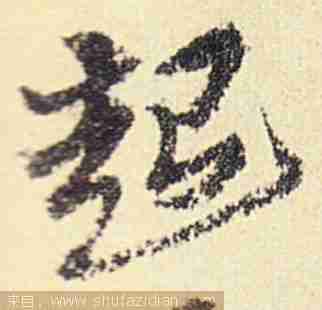 超
来自：www.shufazidian.com